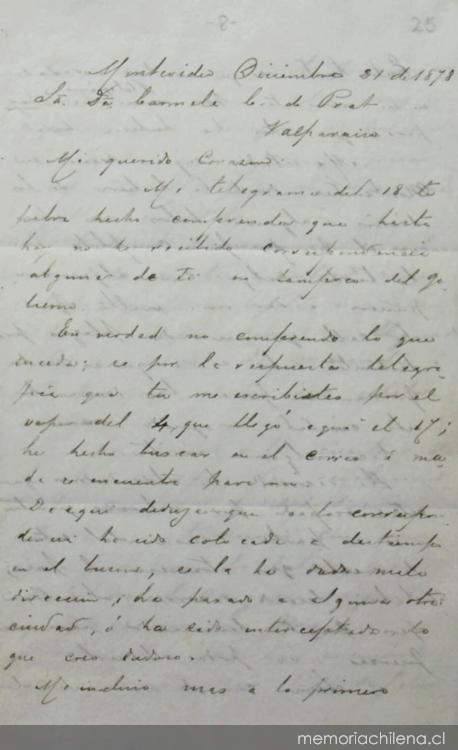 -8-
25
Montevideo Diciembre 21 de 1878
Sa. Da. Carmela C. de Prat
Valparaiso
Mi querido Corazon:
Mi telegrama del 18 te
habra hecho comprender que hasta
hoy no he recibido correspondencia
alguna de ti ni tampoco del go-
bierno.
En verdad no comprendo lo que
suceda; se por la respuesta telegra-
fica que tu me escribistes por el
vapor del 4, que llegó aqui el 17;
he hecho buscar en el correo i na-
da se encuentra para mi.
De aqui deduzco que la correspon-
dencia ha sido colocada a destiempo
en el buzon, se la ha dado mala
direccion, ha pasado a alguna otra
ciudad, ó ha sido interceptada lo
que creo dudoso.
Me inclino mas a lo primero
memoriachilena.cl